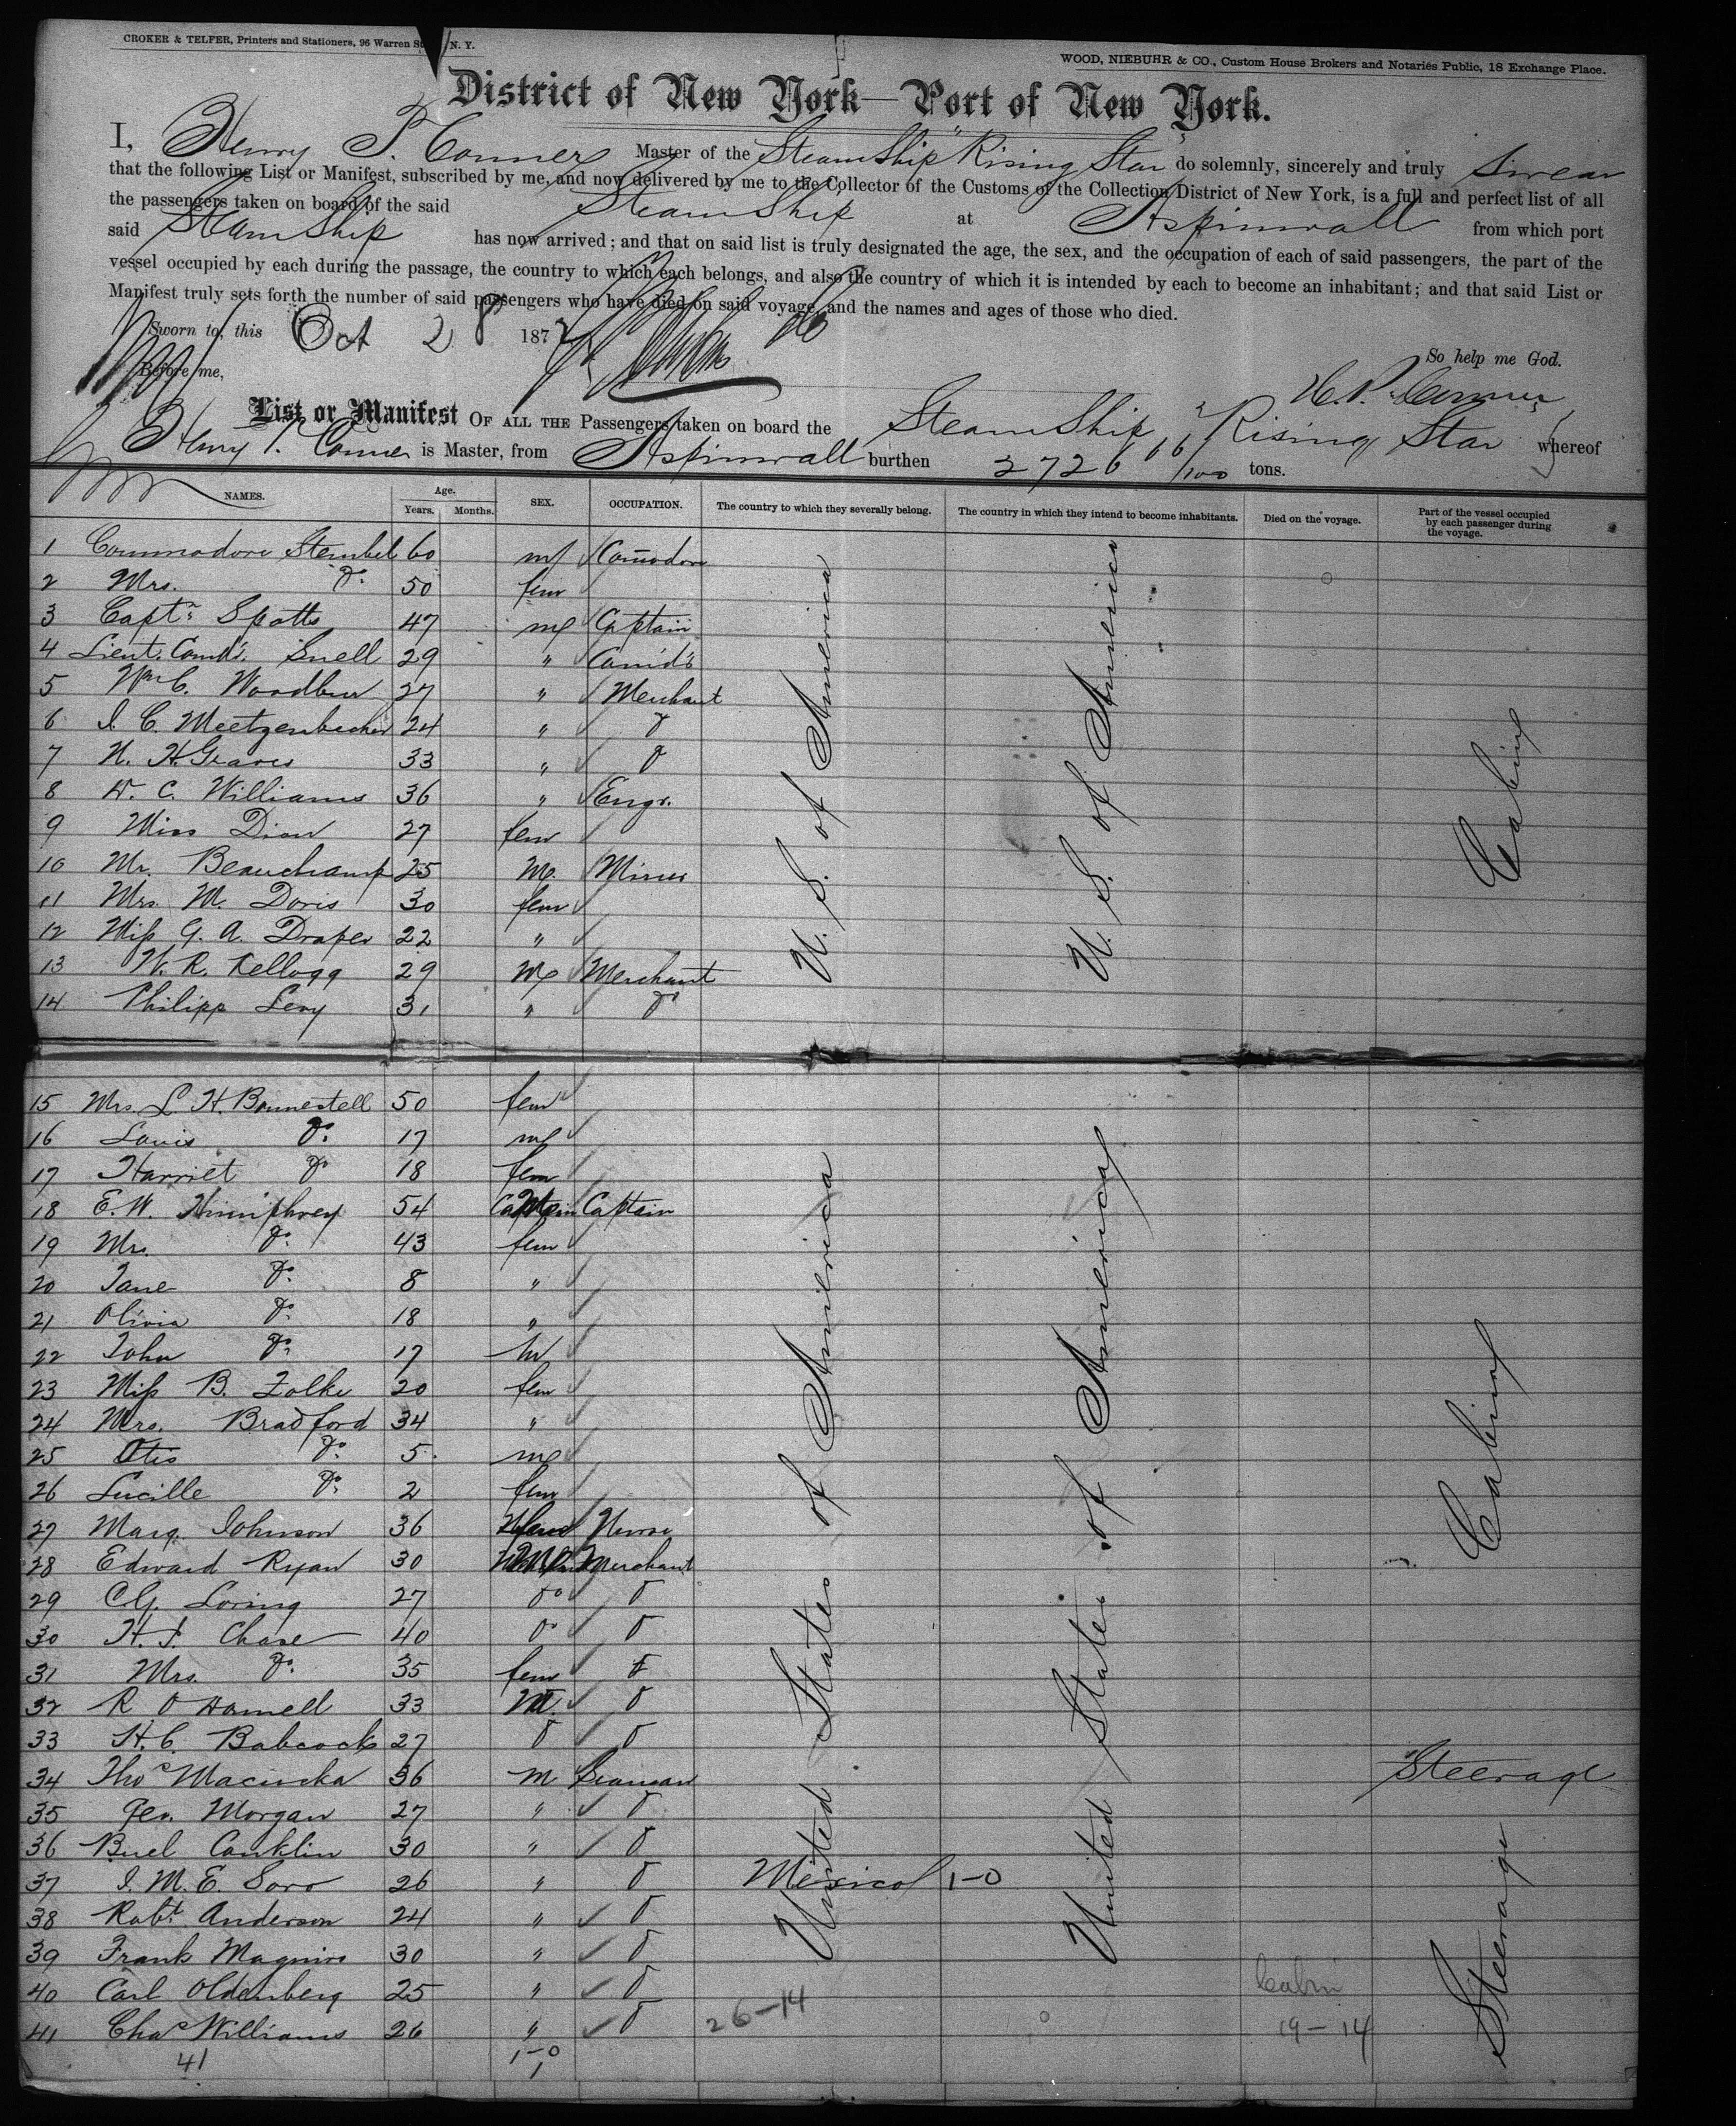 CROKER & TELFER, Printers and Stationers, 96 Warren St., N. Y.
WOOD, NIEBUHR & CO., Custom House Brokers and Notaries Public, 18 Exchange Place.
District of New York—Port of New York.
I, Henry P. Conner Master of the SteamShip "Rising Star" do solemnly, sincerely and truly swear
that the following List or Manifest, subscribed by me, and now delivered by me to the Collector of the Customs of the Collection District of New York, is a full and perfect list of all
the passengers taken on board of the said SteamShip at Aspinwall from which port
said SteamShip has now arrived; and that on said list is truly designated the age, the sex, and the occupation of each of said passengers, the part of the
vessel occupied by each during the passage, the country to which each belongs, and also the country of which it is intended by each to become an inhabitant; and that said List or
Manifest truly sets forth the number of said passengers who have died on said voyage, and the names and ages of those who died.
Sworn to, this Oct 28 1872
So help me God.
Before me,
H. P. Conner
List or Manifest OF ALL THE Passengers taken on board the SteamShip "Rising Star whereof
Henry P. Conner is Master, from Aspinwall burthen 2726 66/100 tons.
NAMES. Age. Years. Months. SEX. OCCUPATION. The country to which they severally belong. The country in which they intend to become inhabitants. Died on the voyage. Part of the vessel occupied by each passenger during the voyage.
1 Commodore Stembel 60 m Comodore
2 Mrs. Do 50 fem
3 Captn Spotts 47 m Captain
4 Lieut. Comdr. Snell 29 " Comdr
5 Wm C. Woodbur 27 " Merchant
6 I. C. Meetzenbecher 24 " Do
7 N. H. Graves 33 " Do
8 W. C. Williams 36 " Engr.
9 Miss Dion 27 fem
10 Mr. Beauchamp 25 M. Miner
11 Mrs. M. Doris 30 fem
12 Miss G. A. Draper 22 "
13 W. R. Kellogg 29 M Merchant
14 Philipp Levy 31 " Do
U. S. of America
U. S. of America
Cabin
15 Mrs. L. H. Bonnestell 50 fem
16 Louis Do 17 m
17 Harriet Do 18 fem
18 E. W. Humphrey 54 M Captain
19 Mrs. Do 43 fem
20 Jane Do 8 "
21 Olivia Do 18 "
22 John Do 17 M
23 Miss B. Zolke 20 fem
24 Mrs. Bradford 34 "
25 Otis Do 5 m
26 Lucille Do 2 fem
27 Marg. Johnson 36 fem Nurse
28 Edward Ryan 30 M Merchant
29 C. G. Loring 27 Do Do
30 H. I. Chase 40 Do Do
31 Mrs. Do 35 fem
32 R O Hamell 33 M. Do
33 H. C. Babcock 27 Do Do
34 Thos Macinka 36 M Seaman Steerage
35 Geo. Morgan 27 " Do
36 Buel Conklin 30 " Do
37 I. M. E. Soro 26 " Do Mexico 1-0
38 Robt. Anderson 24 " Do
39 Frank Maguire 30 " Do
40 Carl Oldenberg 25 " Do
41 Chas Williams 26 " Do
United States of America
United States of America
Cabin
Steerage
41
1-0
1
26-14
Cabin
19-14